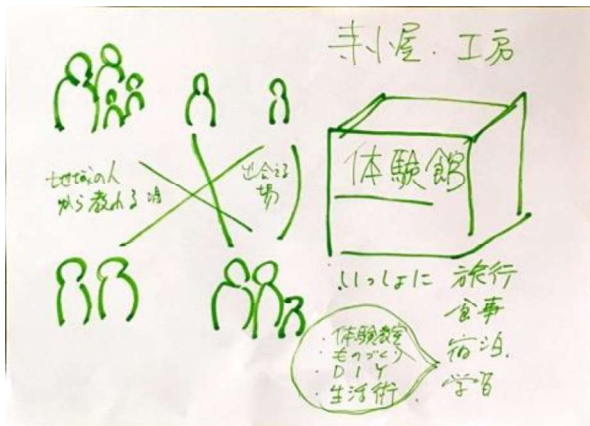 寺小屋・工房
体験館
地域の人
から教わる場
出会える
場
いっしょに 旅行
食事
宿泊
学習
・体験教室
・ものづくり
・DIY
・生活術